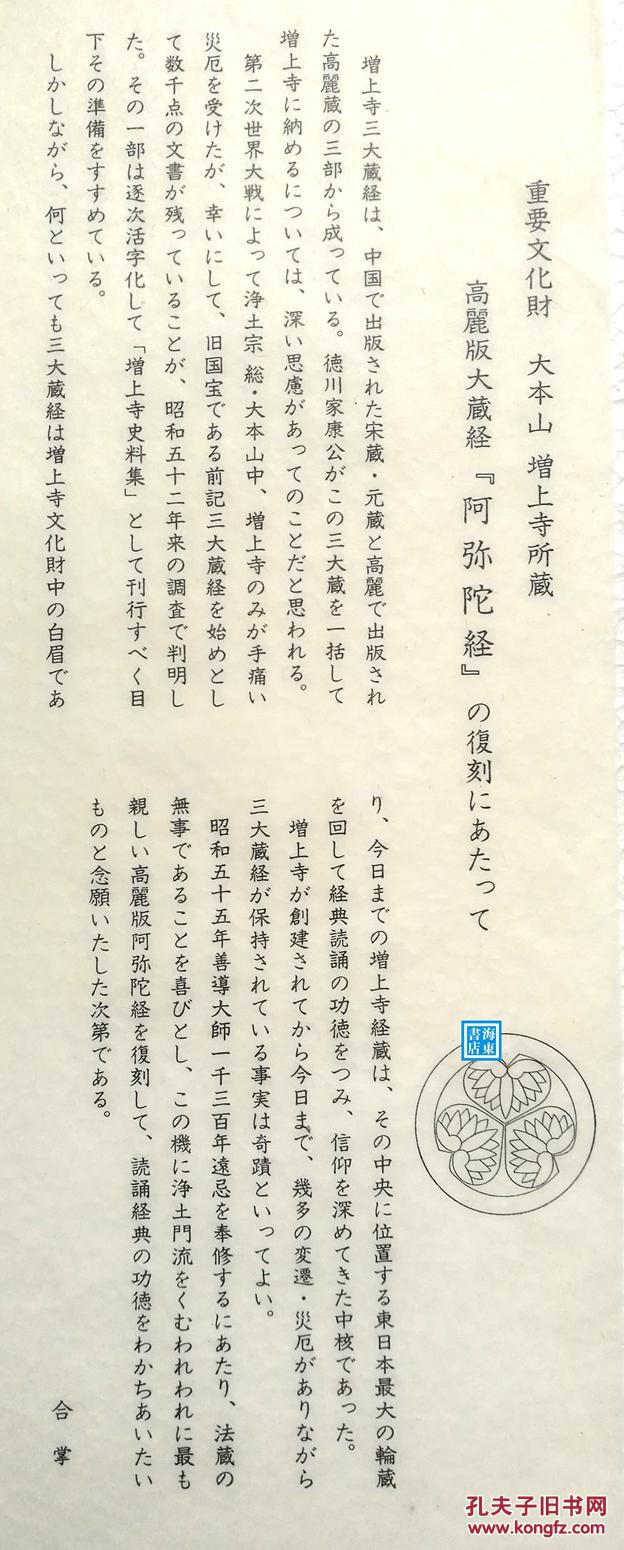 重要文化財　大本山 増上寺所蔵
高麗版大蔵経『阿弥陀経』の復刻にあたって
増上寺三大蔵経は、中国で出版された宋蔵・元蔵と高麗で出版され
た高麗蔵の三部から成っている。徳川家康公がこの三大蔵を一括して
増上寺に納めるについては、深い思慮があってのことだと思われる。
第二次世界大戦によって浄土宗 総・大本山中、増上寺のみが手痛い
災厄を受けたが、幸いにして、旧国宝である前記三大蔵経を始めとし
て数千点の文書が残っていることが、昭和五十二年来の調査で判明し
た。その一部は逐次活字化して「増上寺史料集」として刊行すべく目
下その準備をすすめている。
しかしながら、何といっても三大蔵経は増上寺文化財中の白眉であ
り、今日までの増上寺経蔵は、その中央に位置する東日本最大の輪蔵
を回して経典読誦の功徳をつみ、信仰を深めてきた中核であった。
増上寺が創建されてから今日まで、幾多の変遷・災厄がありながら
三大蔵経が保持されている事実は奇蹟といってよい。
昭和五十五年善導大師一千三百年遠忌を奉修するにあたり、法蔵の
無事であることを喜びとし、この機に浄土門流をくむわれわれに最も
親しい高麗版阿弥陀経を復刻して、読誦経典の功徳をわかちあいたい
ものと念願いたした次第である。
合掌
海東
書店
孔夫子旧书网
www.kongfz.com